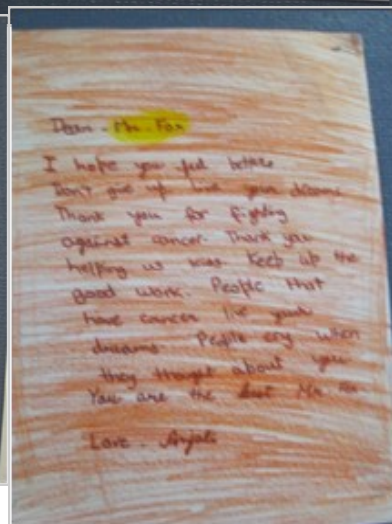 Dear. Mr. Fox
I hope you feel better
Don't give up live your dreams
Thank you for fighting
against cancer. Thank you
helping us kids Keep up the
good work. People that
have cancer live your
dreams. People cry when
they thought about you
You are the best Mr. Fox
Love. Anjali